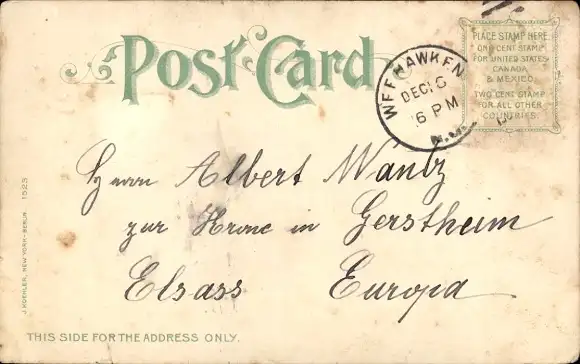 POST CARD
PLACE STAMP HERE
ONE CENT STAMP
FOR UNITED STATES
CANADA
& MEXICO
TWO CENT STAMP
FOR ALL OTHER
COUNTRIES
WEEHAWKEN
DEC 16
6 PM
N.J.
Herrn Albert Wantz
zur Krone in Gerstheim
Elsass Europa
J. KOEHLER, NEW YORK-BERLIN 1523
THIS SIDE FOR THE ADDRESS ONLY.